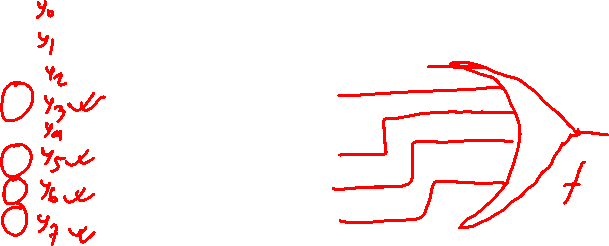 y₀
y₁
y₂
y₃
y₄
y₅
y₆
y₇
f